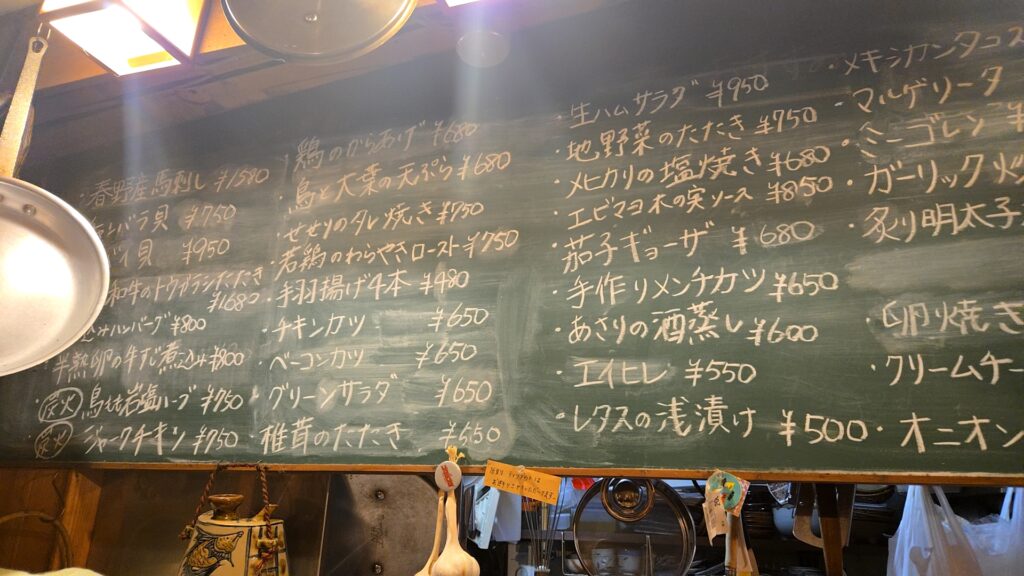 馬刺し ¥1580
バラ貝 ¥750
イ貝 ¥950
和牛のトウガラシたたき
¥1680
ハンバーグ ¥800
半熟卵の牛すじ煮込み ¥800
・炭火 鳥もも岩塩ハーブ ¥750
・炭火 ジャークチキン ¥750
・鶏のからあげ ¥680
・鳥と大葉の天ぷら ¥680
・せせりのタレ焼き ¥750
・若鶏のわらやきロースト ¥750
・手羽揚げ4本 ¥480
・チキンカツ ¥650
・ベーコンカツ ¥650
・グリーンサラダ ¥650
・椎茸のたたき ¥550
・生ハムサラダ ¥950
・地野菜のたたき ¥750
・メヒカリの塩焼き ¥680
・エビマヨ木の実ソース ¥850
・茄子ギョーザ ¥680
・手作りメンチカツ ¥650
・あさりの酒蒸し ¥600
・エイヒレ ¥550
・レタスの浅漬け ¥500
・メキシカンタコス
・マルゲリータ
・ミニゴレン ¥
・ガーリック
・炙り明太子
・卵焼き
・クリームチー
・オニオン